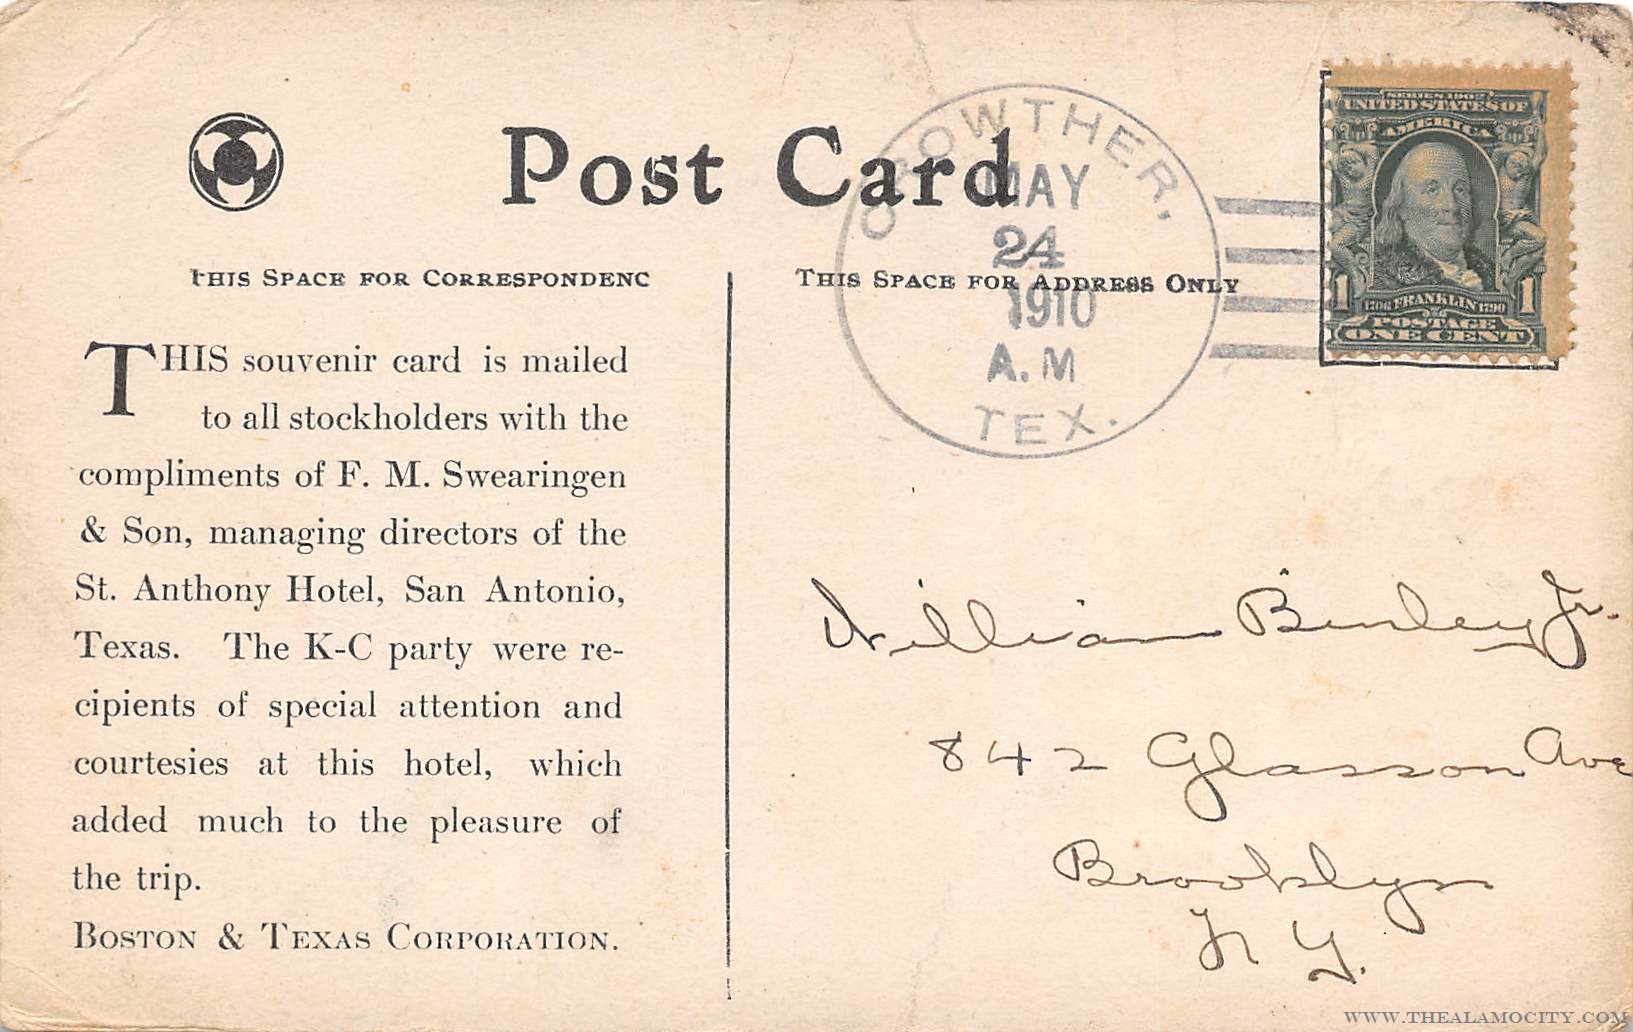 Post Card
CROWTHER,
MAY
24
1910
A.M
TEX.
SERIES 1902
UNITED STATES OF
AMERICA
1706 FRANKLIN 1790
1 1
POSTAGE
ONE CENT
THIS SPACE FOR CORRESPONDENC
THIS souvenir card is mailed
to all stockholders with the
compliments of F. M. Swearingen
& Son, managing directors of the
St. Anthony Hotel, San Antonio,
Texas. The K-C party were re-
cipients of special attention and
courtesies at this hotel, which
added much to the pleasure of
the trip.
BOSTON & TEXAS CORPORATION.
THIS SPACE FOR ADDRESS ONLY
William Binley Jr.
842 Glasson Ave
Brooklyn
N Y.
WWW.THEALAMOCITY.COM